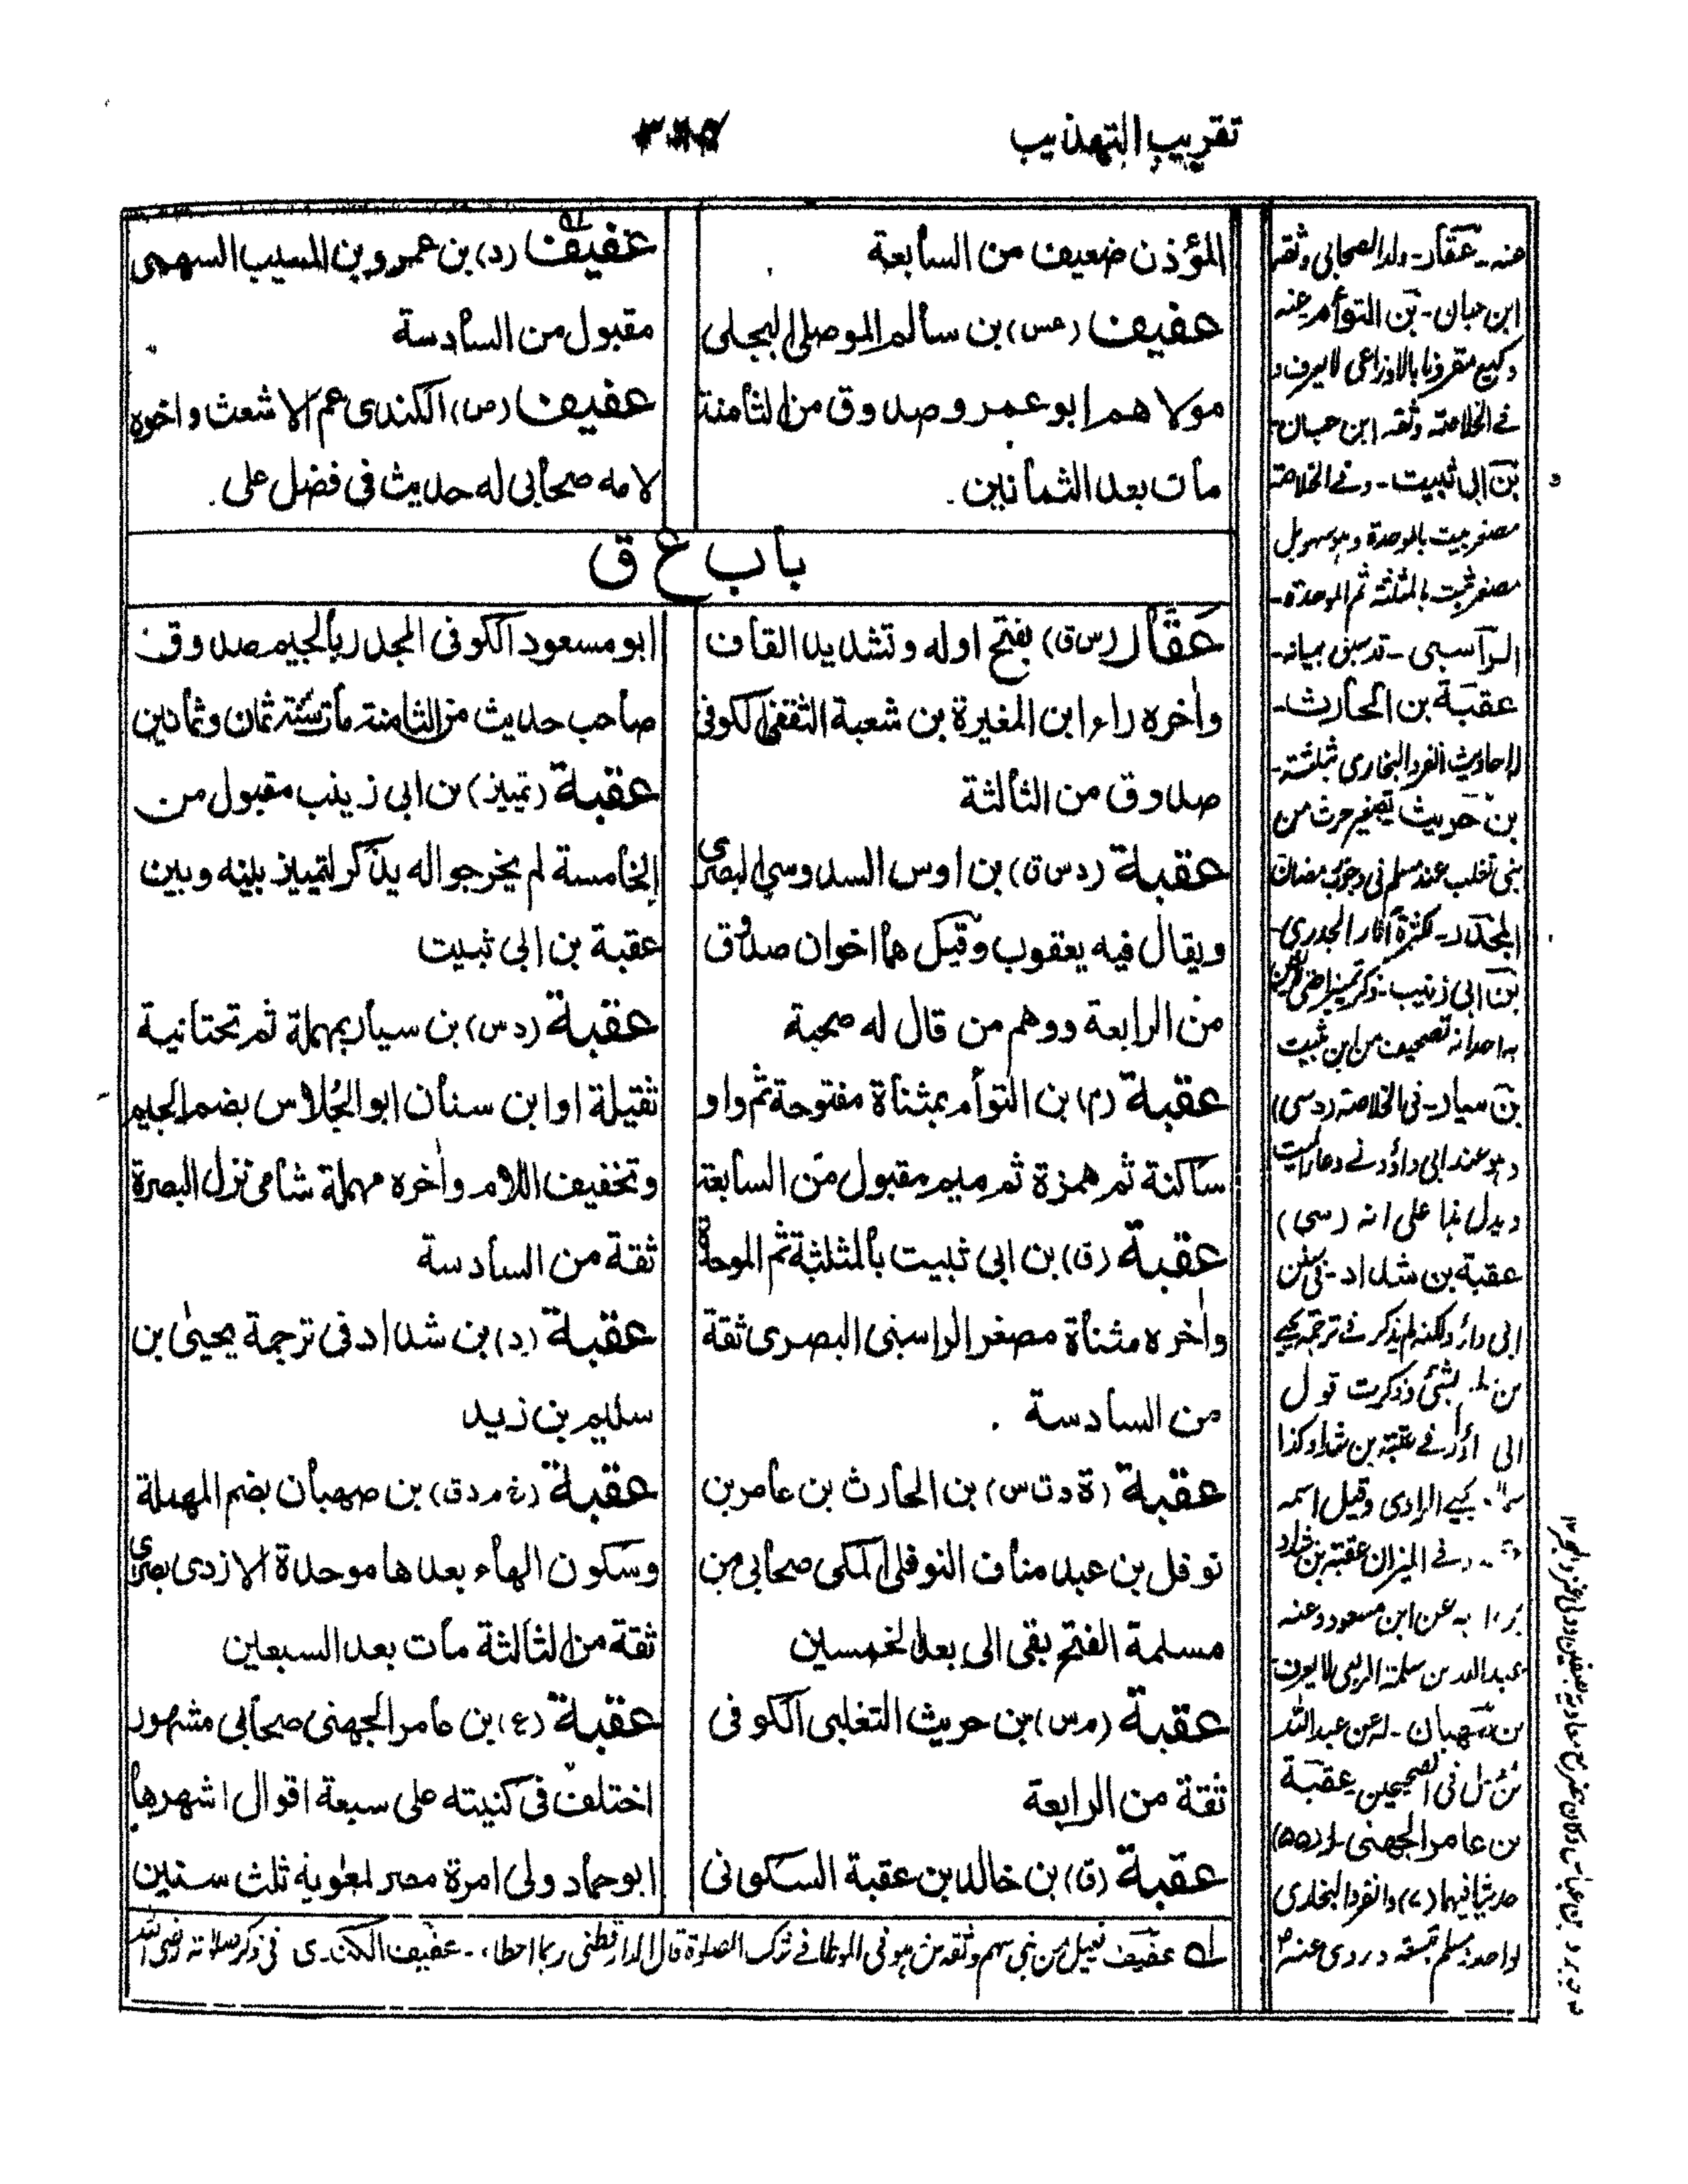 تقريب التهذيب
المؤذن ضعيف من السابعة
عفيف (عس) بن سالم الموصلى البجلى
مولاهم ابو عمرو صدوق من الثامنة
مات بعد الثمانين
عفيف (د) بن عمرو بن المسيب السهمى
مقبول من السادسة
عفيف (ص) الكندى عم الاشعث واخوه
لامه صحابى له حديث فى فضل على
باب ع ق
عقّار (س ق) بفتح اوله وتشديد القاف
واخره راء ابن المغيرة بن شعبة الثقفى الكوفى
صدوق من الثالثة
عقبة (د س ق) بن اوس السدوسى البصرى
ويقال فيه يعقوب وقيل هما اخوان صدوق
من الرابعة ووهم من قال له صحبة
عقبة (م) بن التوأم بمثناة مفتوحة ثم واو
ساكنة ثم همزة ثم ميم مقبول من السابعة
عقبة (ق) بن ابى ثبيت بالمثلثة ثم الموحدة
واخره مثناة مصغر الراسبى البصرى ثقة
من السادسة
عقبة (ة د ت س) بن الحارث بن عامر بن
نوفل بن عبد مناف النوفلى المكى صحابى من
مسلمة الفتح بقى الى بعد الخمسين
عقبة (م س) بن حريث التغلبى الكوفى
ثقة من الرابعة
عقبة (ق) بن خالد بن عقبة السكونى
ابو مسعود الكوفى المجدر بالجيم صدوق
صاحب حديث من الثامنة مات سنة ثمان وثمانين
عقبة (تمييز) بن ابى زينب مقبول من
الخامسة لم يخرجوا له يذكر لتمييز بينه وبين
عقبة بن ابى ثبيت
عقبة (د س) بن سيار بمهملة ثم تحتانية
ثقيلة او ابن سنان ابو الجُلاس بضم الجيم
وتخفيف اللام واخره مهملة شامى نزل البصرة
ثقة من السادسة
عقبة (د) بن شداد فى ترجمة يحيىٰ بن
سليم بن زيد
عقبة (خ م د ق) بن صهبان بضم المهملة
وسكون الهاء بعدها موحدة الازدى بصرى
ثقة من الثالثة مات بعد السبعين
عقبة (ع) بن عامر الجهنى صحابى مشهور
اختلف فى كنيته على سبعة اقوال اشهرها
ابو حماد ولى امرة مصر لمعٰوية ثلث سنين
عنه۔ عقار۔ ولد الصحابى وثقه
ابن حبان۔ بن التوأم عنه
وكيع مقرونا بالاوزاعى لا يعرف و
فے الخلاصة وثقه ابن حبان۔
بن ابى ثبيت۔ وفے الخلاصة
الراسبى۔ قد سبق بيانه۔
عقبة بن الحارث۔
له احاديث انفرد البخارى بثلثة۔
بن حريث تصغير حرث من
بنى تغلب عند مسلم فى
المجدر۔ لكثرة آثار الجدرى۔
بن ابى زينب۔
بن سيار۔ فى الخلاصة (دسى)
ويدل هذا على انه (سى)
عقبة بن شداد۔
وذكرت قول
يحيى الراوى وقيل اسمه
عن ابن مسعود وعنه
عبد الله بن سلمة الربعى لا يعرف
بن صهبان۔ له عن عبد الله
فى الصحيحين عقبة
بن عامر الجهنى۔ له (۵۵)
حديثا فيهما (۷) وانفرد البخارى
بواحد ومسلم بتسعة وروى عنه
عفيف قيل من بنى سهم وثقه س هو فى الموطا فے ترك الصلوة قال الدارقطنى ربما اخطاء۔ عفيف الكندى فى ذكر صلاته